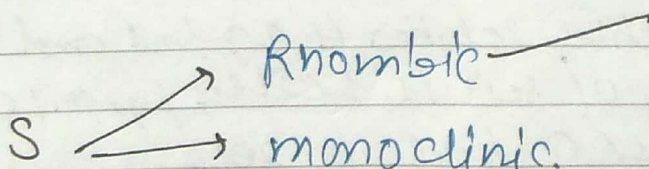 Rhombic
S
monoclinic.